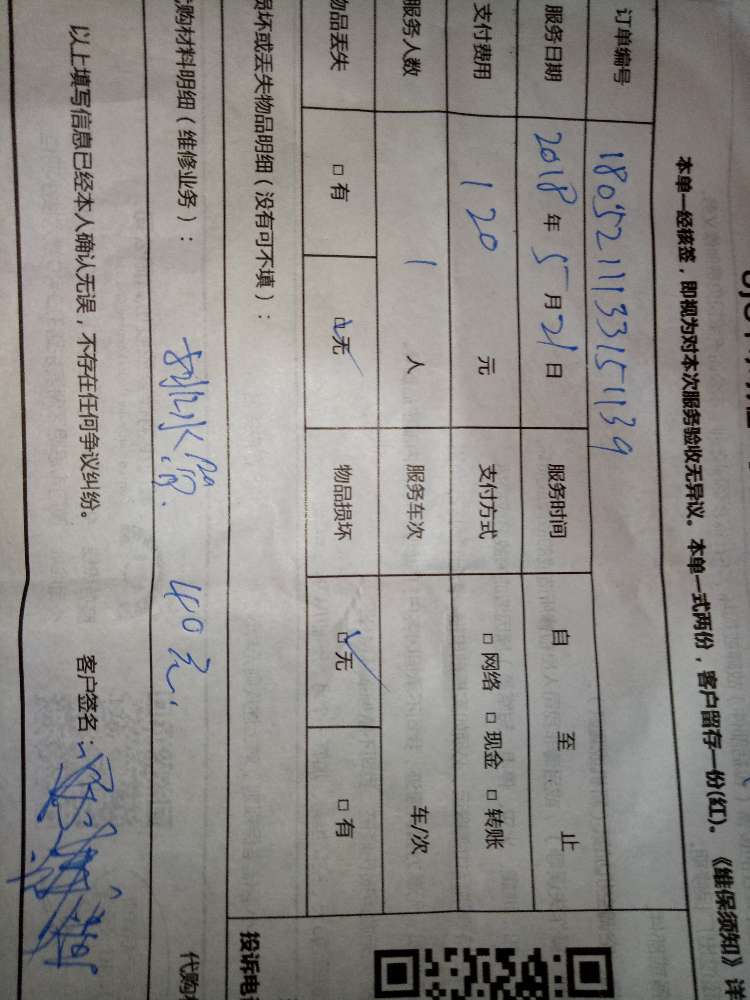 本单一经核签，即视为对本次服务验收无异议。本单一式两份，客户留存一份(红)。《维保须知》详
订单编号 1805211133151139
服务日期 2018年5月21日 服务时间 自 至 止
支付费用 120 元 支付方式 □网络 □现金 □转账
服务人数 1 人 服务车次 车/次
物品丢失 □有 □无 物品损坏 □无 □有
损坏或丢失物品明细（没有可不填）：
投诉电
代购材料明细（维修业务）： 40元.
代购
以上填写信息已经本人确认无误，不存在任何争议纠纷。 客户签名：